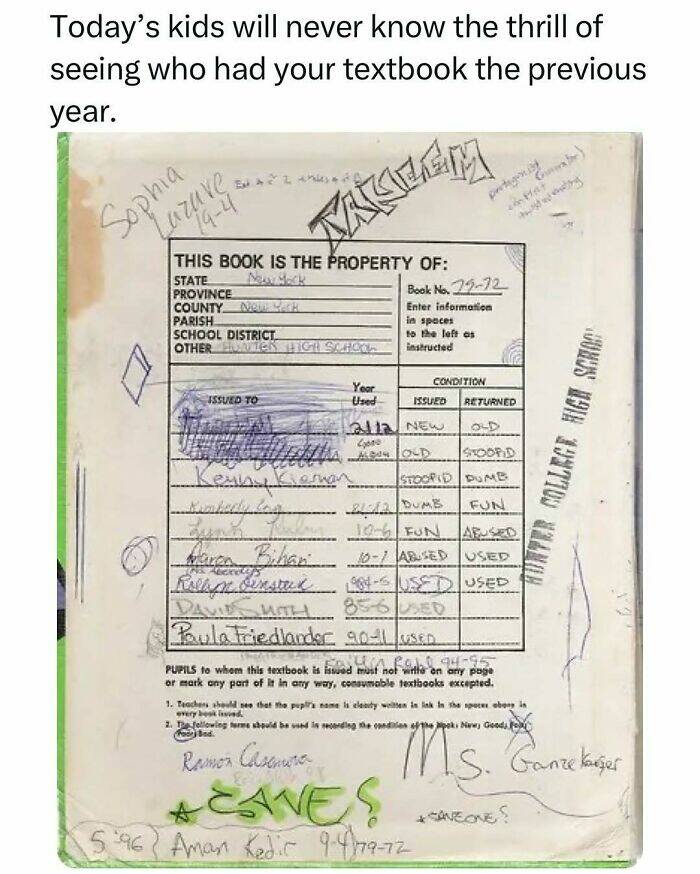 Today's kids will never know the thrill of
seeing who had your textbook the previous
year.
Sophia
Lazare
19-4
TAKEEM
THIS BOOK IS THE PROPERTY OF:
STATE New York
PROVINCE
COUNTY New York
PARISH
SCHOOL DISTRICT
OTHER HUNTER HIGH SCHOOL
Book No. 79-72
Enter information
in spaces
to the left as
instructed
ISSUED TO
Year
Used
CONDITION
ISSUED RETURNED
NEW OLD
OLD STOOPID
Kenny Kiernan STOOPID DUMB
Kimberly DUMB FUN
Lynn 10-6 FUN ABUSED
Aaron Bihari 10-7 ABUSED USED
USED USED
DAVID SMITH 85-6 USED
Paula Friedlander 90-91 USED
94-95
PUPILS to whom this textbook is issued must not write on any page
or mark any part of it in any way, consumable textbooks excepted.
1. Teachers should see that the pupil's name is clearly written in ink in the spaces above in
every book issued.
2. The following terms should be used in recording the condition of the book: New; Good; Fair;
Poor; Bad.
HUNTER COLLEGE HIGH SCHOOL
Ramon Casanova
Ms. Ganzekaufer
S '96 Aman Kedir 9-4 79-72